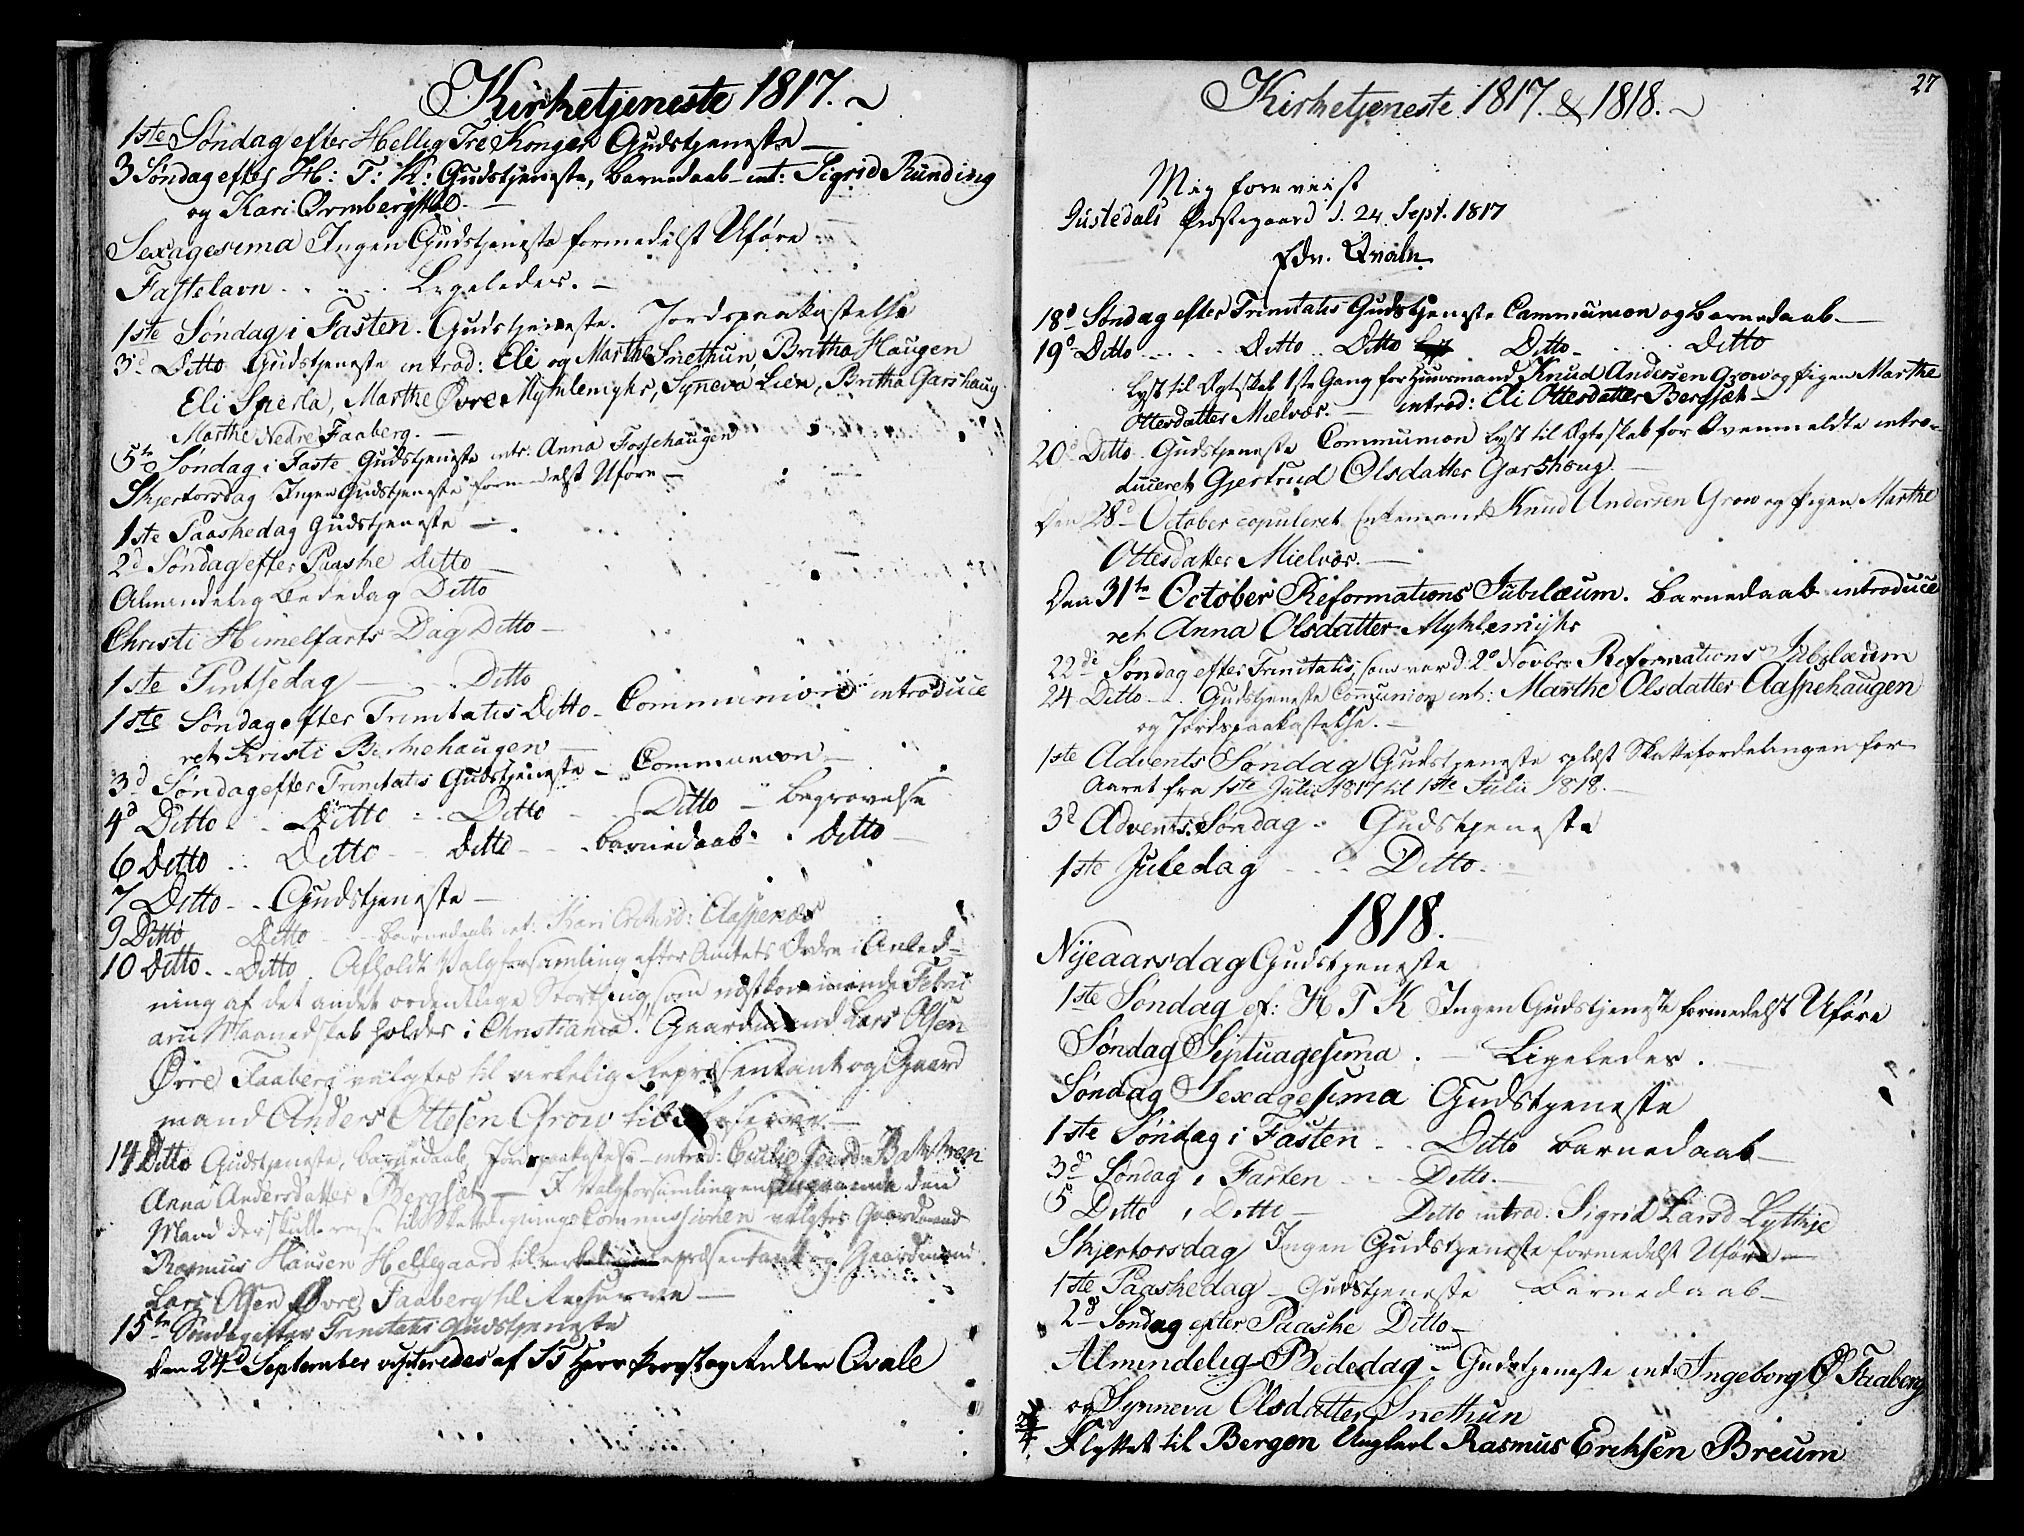 Kirketjeneste 1817.
1ste Søndag efter Hellig Tre Konger Gudstjeneste
3 Søndag efter H: T: K: Gudstjeneste, barnedaab int: Sigrid Runding
og Kari Ormbergstøl.
Sexagesima Ingen Gudstjeneste formedelst Uføre
Fastelavn . . . . Ligeledes.
1ste Søndag i Fasten. Gudstjeneste. Jordspaakastelse
3d Ditto Gudstjeneste introd: Eli og Marthe Snethun, Britha Haugen
Eli Sperla, Marthe Øvre Myklemyhr, Syneva Lien, Britha Garshaug
Marthe Nedre Faaberg.
5te Søndag i Faste Gudstjeneste intr. Anna Fossehaugen
Skjertorsdag Ingen Gudstjeneste formedelst Uføre
1ste Paaskedag Gudstjeneste
2d Søndag efter Paaske Ditto
Almindelig Bededag Ditto
Christi Himelfarts Dag Ditto
1ste Pintsedag Ditto
1ste Søndag efter Trinitatis Ditto Communion introduce
ret Kristi Birkehaugen
3d Søndag efter Trinitatis Gudstjeneste Communion
4d Ditto . . Ditto . . Ditto Ditto begravelse
6 Ditto . . Ditto Ditto barnedaab Ditto
7 Ditto Gudstjeneste
9 Ditto Ditto barnedaab int: Kari Aaspenæs
10 Ditto Ditto Afholdt Valgforsamling efter Amtets Ordre i Anled-
ning af det andet ordentlige Storthing som næstkommende Febru
arii Maaned skal holdes i Christiania. Gaardmand Lars Olsen
Øvre Faaberg valgtes til virkelig Repræsentant og Gaard
mand Anders Ottesen Grow til
14 Ditto Gudstjeneste, barnedaab, Jordspaakastelse introd:
Anna Andersdatter Bergsæt I Valgforsamlingen angaaende den
Mand der skulle til Skatteligningscommissionen valgtes Gaardmand
Rasmus Hansen Hellegaard til repræsentant og Gaardmand
Lars Olsen Øvre Faaberg til Reserve
15te Søndag efter Trinitatis Gudstjeneste
den 24d September visiteredes af Herr Provst og Ridder Qvale
Kirketjeneste 1817. & 1818.
27
Mig foreviist
Justedals Præstegaard d. 24 Sept. 1817
Qvale
18d Søndag efter Trinitatis Gudstjeneste Communion og barnedaab
19d Ditto . . . . Ditto . . Ditto Ditto . . . Ditto
lyst til Ægteskab 1ste Gang for Knud Andersen Grow og Pigen Marthe
Ottesdatter Mielvær. introd: Eli Ottesdatter Bergsæt
20d Ditto. Gudstjeneste Communion lyst til Ægteskab for Ovenmeldte intro-
duceret Gjertrud Olsdatter Garshoug.
Den 28d October copuleret Enkemand Knud Andersen Grow og Pigen Marthe
Ottesdatter Mielvær.
Den 31te October Reformations Jubilæum. barnedaab introduce
ret Anna Olsdatter Myklemyhr
22de Søndag efter Trinitatis, som var d. 2d Novbr Reformations Jubilæum
24 Ditto . . Gudstjeneste Communion int: Marthe Olsdatter Aaspehaugen
og Jordspaakastelse.
1ste Advents Søndag Gudstjeneste oplæst Skattefordelingen for
Aaret fra 1ste Julii 1817 til 1ste Julii 1818.
3d Advents Søndag Gudstjeneste
1ste Juledag . . . Ditto.
1818.
Nyeaarsdag Gudstjeneste
1ste Søndag ef: H T K Ingen Gudstjeneste formedelst Uføre
Søndag Septuagesima . Ligeledes.
Søndag Sexagesima Gudstjeneste
1ste Søndag i Fasten . . Ditto Barnedaab
3d Søndag i Fasten . . Ditto
5 Ditto i Ditto Ditto introd: Sigrid Larsd Lythje
Skjertorsdag Ingen Gudstjeneste formedelst Uføre
1ste Paaskedag Gudstjeneste Barnedaab
2d Søndag efter Paaske Ditto
Almindelig Bededag Gudstjeneste int: Ingeborg Ø Faaberg
og Synneva Olsdatter Snethun
Flyttet til Bergen Ungkarl Rasmus Eriksen Breum